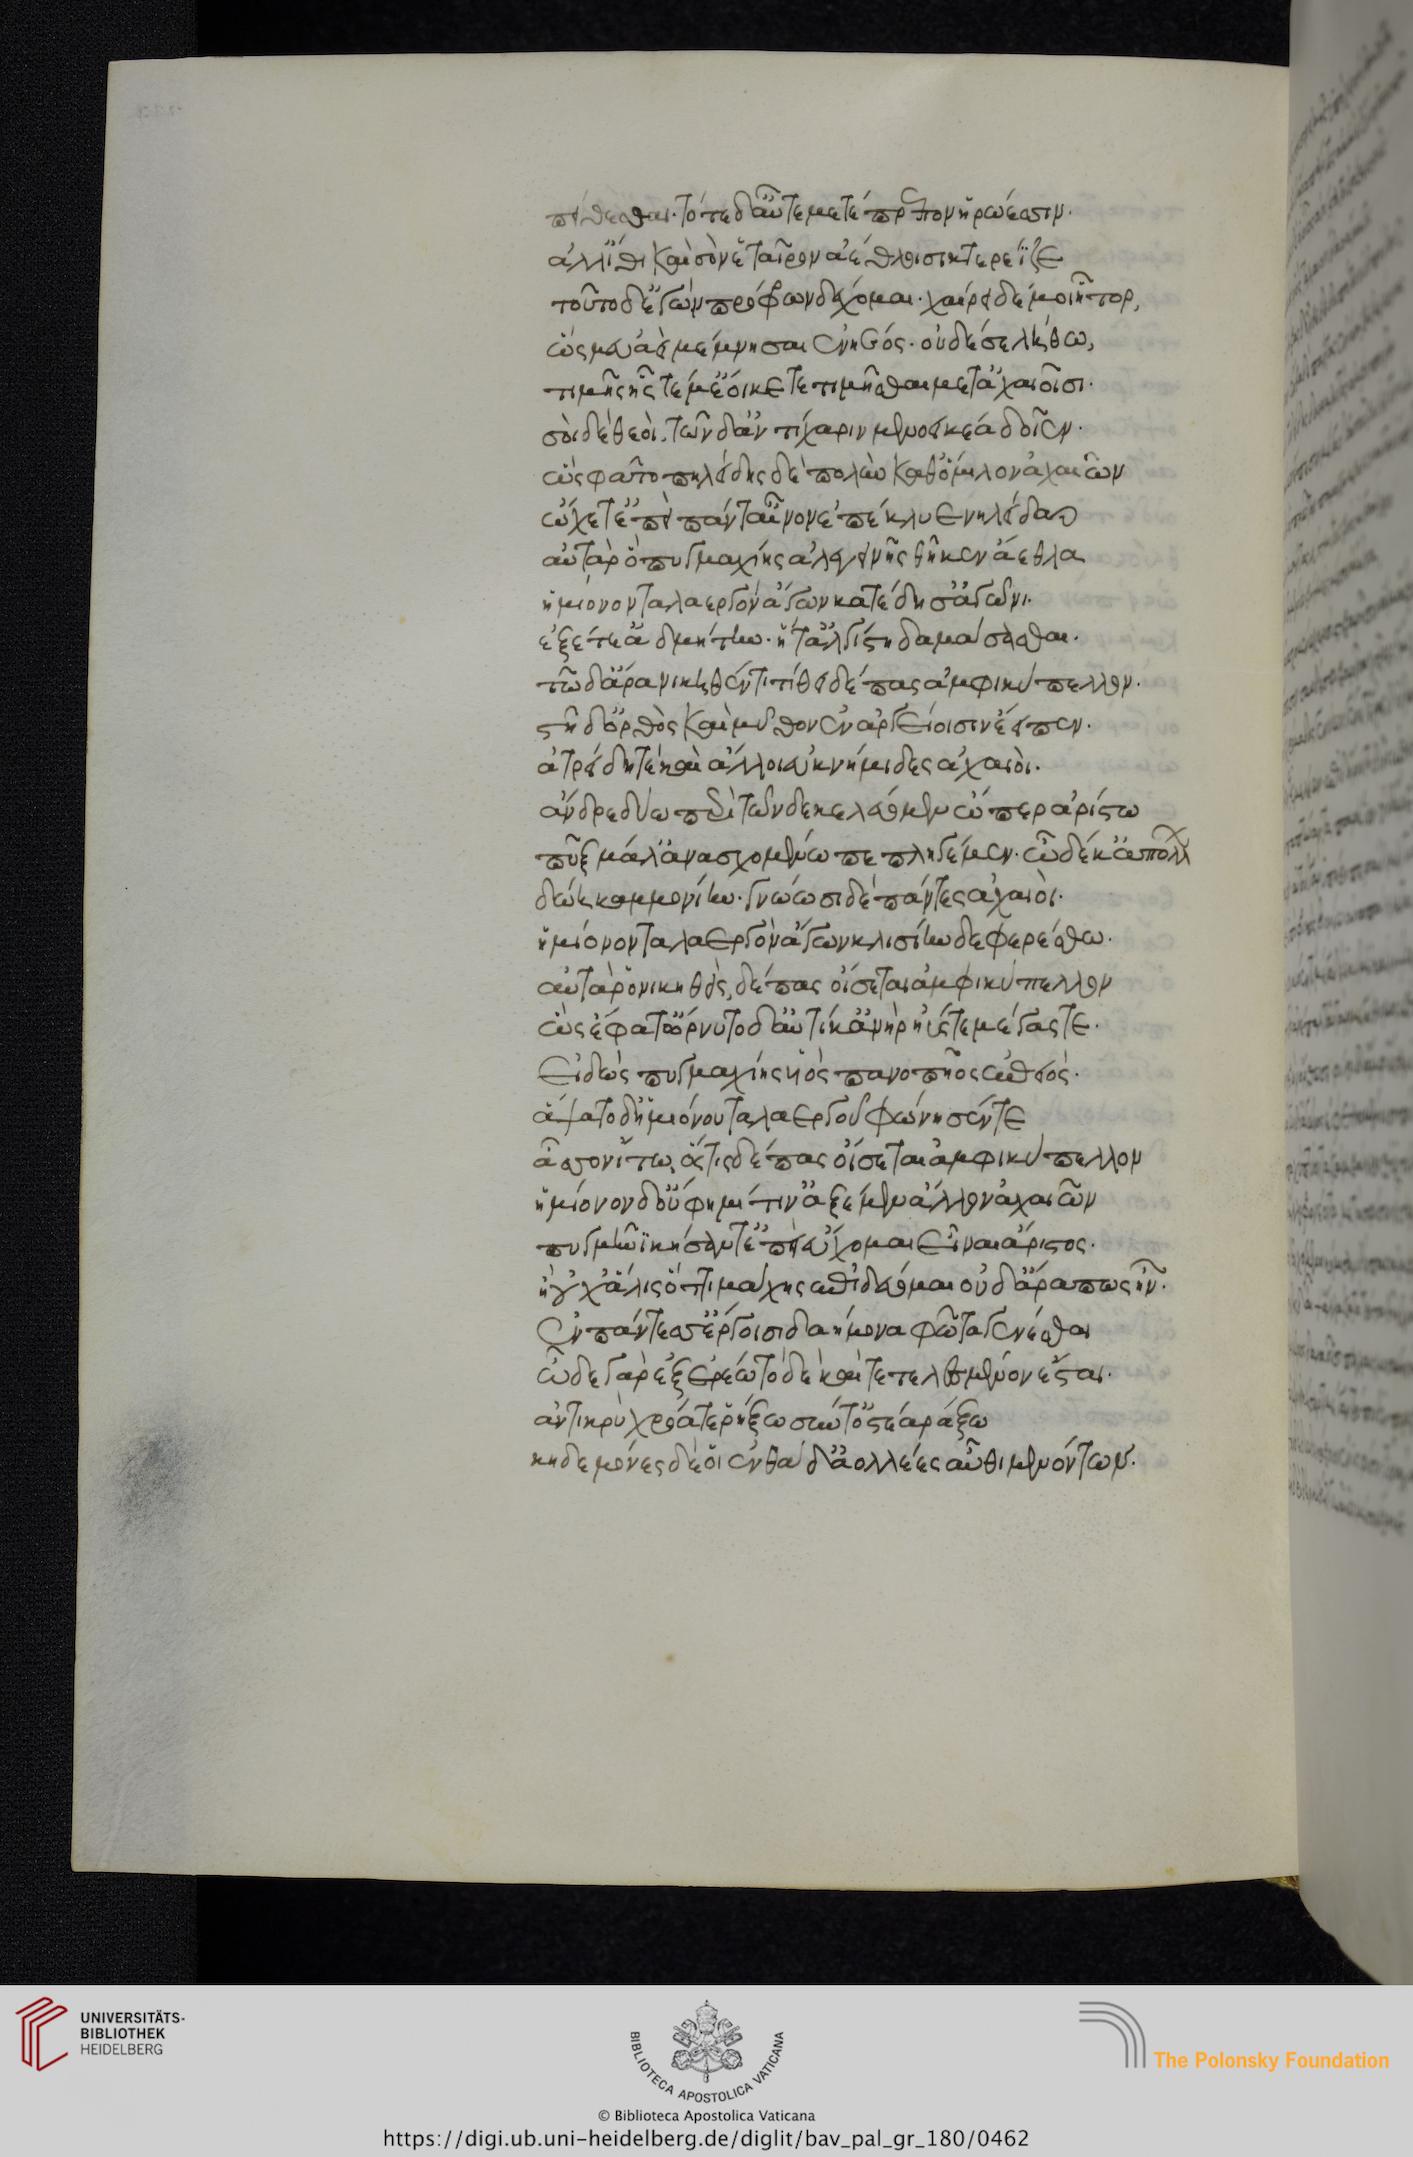 πείθεσθαι. τότε δ' αὖτε μετέπρεπον ἡρώεσσιν.
ἀλλ' ἴθι καὶ σὸν ἑταῖρον ἀέθλοισι κτερέϊζε
τοῦτο δ' ἐγὼν πρόφρων δέχομαι. χαίρει δέ μοι ἦτορ,
ὥς μευ ἀεὶ μέμνησαι ἐνηέος. οὐδέ σε λήθω,
τιμῆς ἧς τέ μ' ἔοικε τετιμῆσθαι μετ' ἀχαιοῖσι.
σοὶ δὲ θεοὶ. τῶνδ' ἀντὶ χάριν μενοεικέα δοῖεν.
ὣς φάτο πηλείδης δὲ πολὺν καθ' ὅμιλον ἀχαιῶν
ᾤχετ' ἐπεὶ πάντ' αἶνον ἐπέκλυε νηλείδαο
αὐτὰρ ὁ πυγμαχίης ἀλεγεινῆς θῆκεν ἄεθλα
ἡμίονον ταλαεργὸν ἄγων κατέδησ' ἐν ἀγῶνι.
ἑξέτε' ἀδμήτην. ἥτ' ἀλγίστη δαμάσασθαι.
τῷ δ' ἄρα νικηθέντι τίθει δέπας ἀμφικύπελλον.
στῆ δ' ὀρθὸς καὶ μῦθον ἐν ἀργείοισιν ἔειπεν.
ἀτρείδη τὲ καὶ ἄλλοι ἐυκνήμιδες ἀχαιοὶ.
ἄνδρε δύω περὶ τῶνδε κελεύομεν ὥπερ ἀρίστω
πὺξ μάλ' ἀνασχομένω πεπληγέμεν. ᾧ δέ κ' ἀπόλλ
δώῃ καμμονίην. γνώωσι δὲ πάντες ἀχαιοὶ.
ἡμίονον ταλαεργὸν ἄγων κλισίην δὲ φερέσθω.
αὐτὰρ ὁ νικηθεὶς, δέπας οἴσεται ἀμφικύπελλον
ὣς ἔφατ' ὄρνυτο δ' αὐτίκ' ἀνὴρ ἠΰς τε μέγας τε.
εἰδὼς πυγμαχίης υἱὸς πανοπῆος ἐπειός.
ἅψατο δ' ἡμιόνου ταλαεργοῦ φώνησέν τε
ἆσσον ἴτω, ὅστις δέπας οἴσεται ἀμφικύπελλον
ἡμίονον δ' οὔ φημί τιν' ἀξέμεν ἄλλον ἀχαιῶν
πυγμῇ νικήσαντ' ἐπεὶ εὔχομαι εἶναι ἄριστος.
ἢ οὐχ ἅλις ὅττι μάχης ἐπιδεύομαι οὐδ' ἄρα πως ἦν.
ἐν πάντεσσ' ἔργοισι δαήμονα φῶτα γενέσθαι
ὧδε γὰρ ἐξερέω τὸ δὲ καὶ τετελεσμένον ἔσται.
ἀντικρὺ χρόα τε ῥήξω σύν τ' ὀστέ' ἀράξω
κηδεμόνες δέ οἱ ἐνθάδ' ἀολλέες αὖθι μενόντων.
UNIVERSITÄTS-
BIBLIOTHEK
HEIDELBERG
BIBLIOTECA APOSTOLICA VATICANA
The Polonsky Foundation
© Biblioteca Apostolica Vaticana
https://digi.ub.uni-heidelberg.de/diglit/bav_pal_gr_180/0462